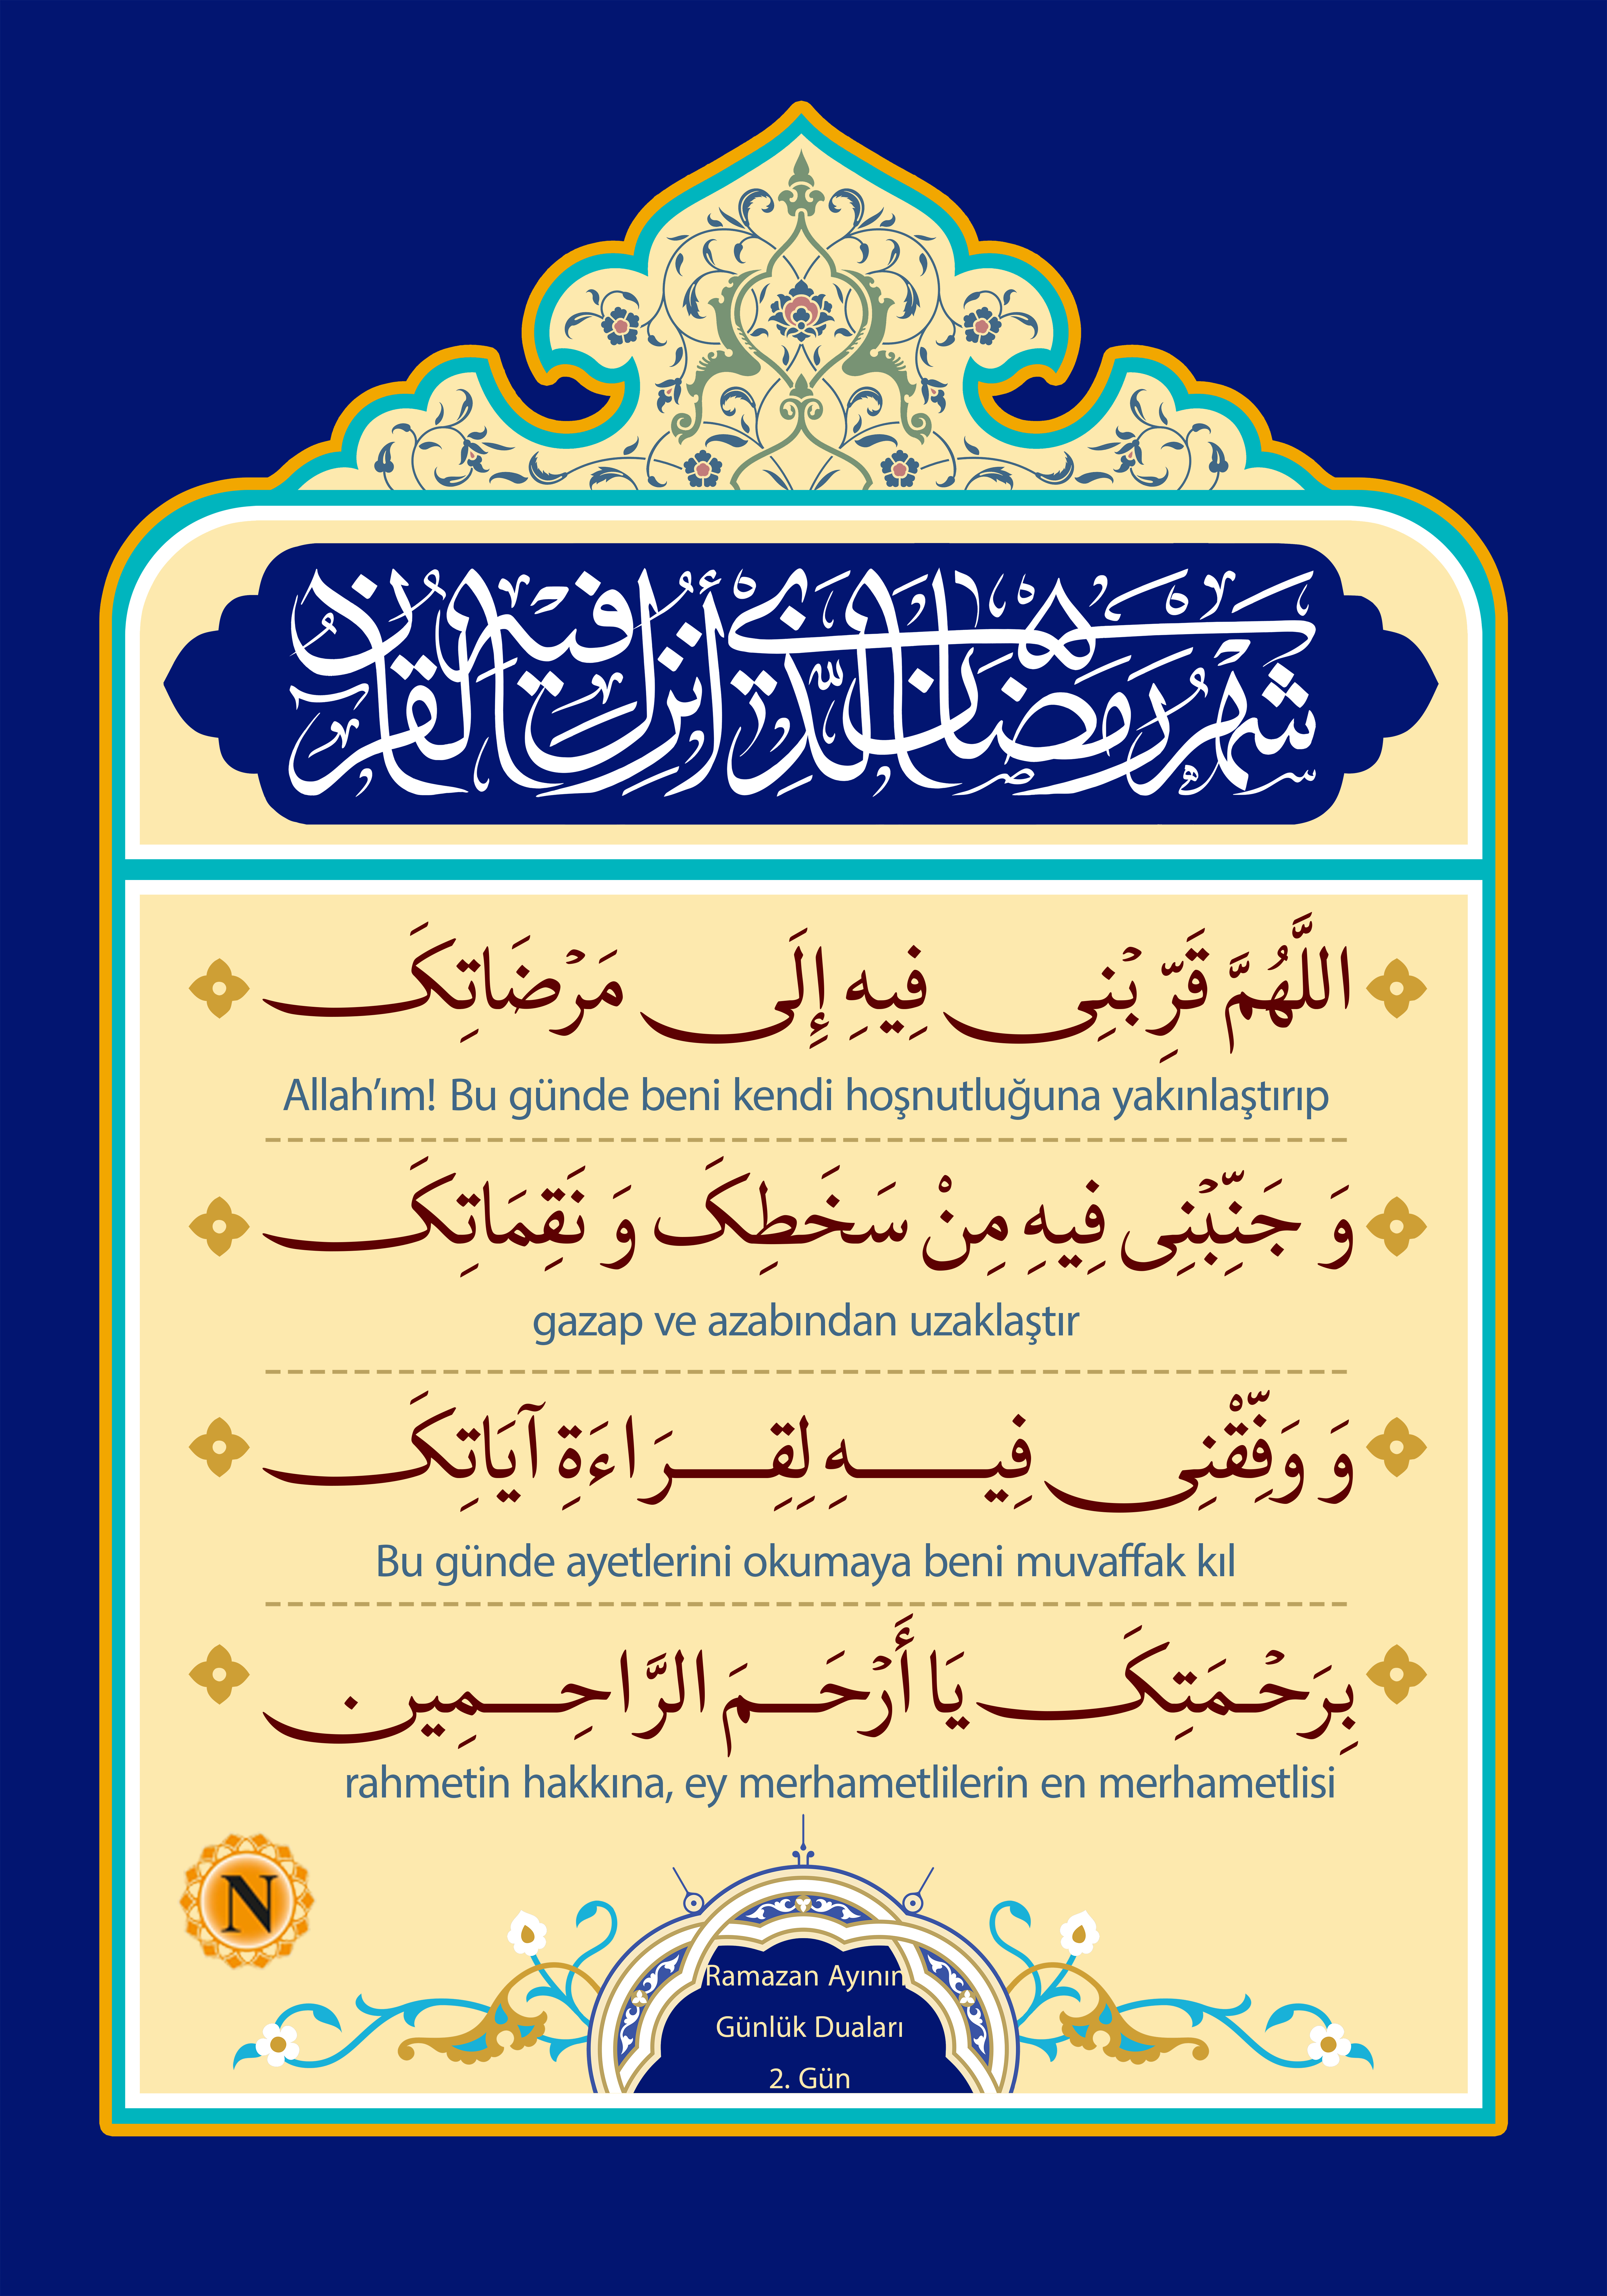 شَهْرُ رَمَضَانَ الَّذِي أُنْزِلَ فِيهِ الْقُرْآنُ
اللَّهُمَّ قَرِّبْنِی فِیهِ إِلَی مَرْضَاتِکَ
Allah’ım! Bu günde beni kendi hoşnutluğuna yakınlaştırıp
وَ جَنِّبْنِی فِیهِ مِنْ سَخَطِکَ وَ نَقِمَاتِکَ
gazap ve azabından uzaklaştır
وَ وَفِّقْنِی فِیهِ لِقِرَاءَةِ آیَاتِکَ
Bu günde ayetlerini okumaya beni muvaffak kıl
بِرَحْمَتِکَ یَا أَرْحَمَ الرَّاحِمِین .
rahmetin hakkına, ey merhametlilerin en merhametlisi
N
Ramazan Ayının
Günlük Duaları
2. Gün